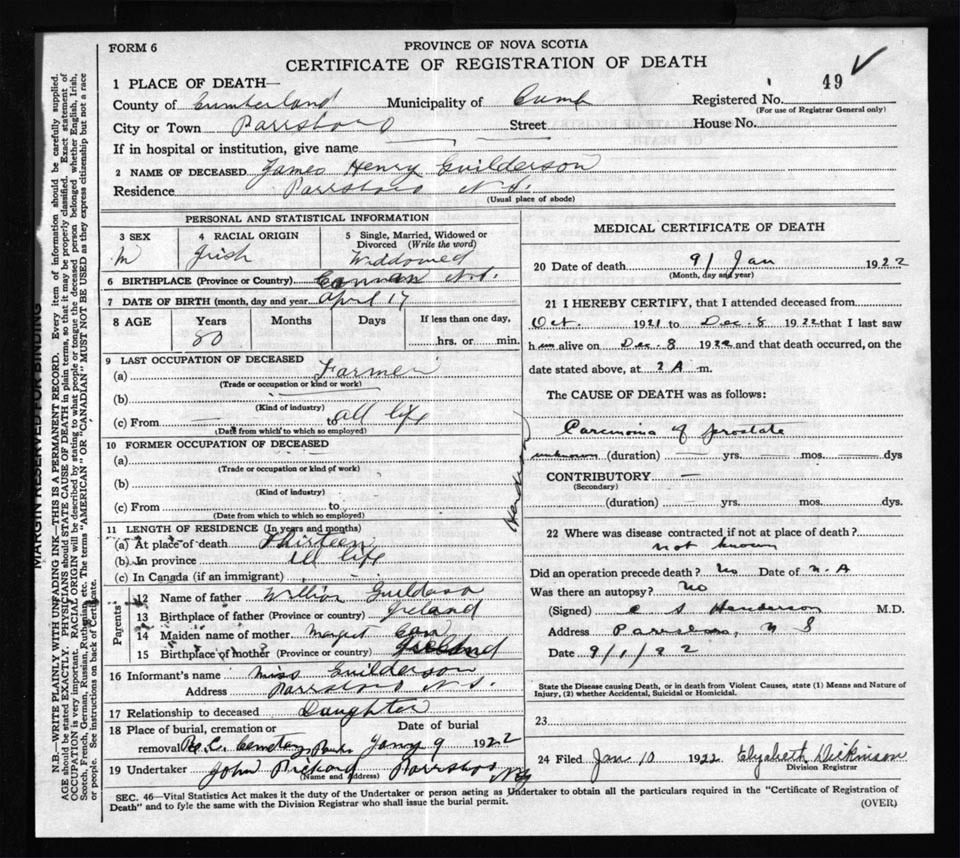 FORM 6
PROVINCE OF NOVA SCOTIA
CERTIFICATE OF REGISTRATION OF DEATH
49 ✓
1 PLACE OF DEATH—
County of Cumberland Municipality of Cumb Registered No.
(For use of Registrar General only)
City or Town Parrsboro Street House No.
If in hospital or institution, give name
2 NAME OF DECEASED James Henry Guilderson
Residence Parrsboro N.S.
(Usual place of abode)
PERSONAL AND STATISTICAL INFORMATION
3 SEX M
4 RACIAL ORIGIN Irish
5 Single, Married, Widowed or Divorced (Write the word) Widdowed
6 BIRTHPLACE (Province or Country) N.S.
7 DATE OF BIRTH (month, day and year April 17
8 AGE Years Months Days If less than one day,
80 hrs. or min.
9 LAST OCCUPATION OF DECEASED
(a) Farmer
(Trade or occupation or kind or work)
(b)
(Kind of industry)
(c) From — to all life
(Date from which to which so employed)
10 FORMER OCCUPATION OF DECEASED
(a)
(Trade or occupation or kind of work)
(b)
(Kind of industry)
(c) From to
(Date from which to which so employed)
11 LENGTH OF RESIDENCE (In years and months)
(a) At place of death Thirteen
(b) In province all life
(c) In Canada (if an immigrant)
Parents
12 Name of father William
13 Birthplace of father (Province or country) Ireland
14 Maiden name of mother
15 Birthplace of mother (Province or country) Ireland
16 Informant's name Miss Guilderson
Address Parrsboro N.S.
17 Relationship to deceased Daughter
18 Place of burial, cremation or removal R.C. Cemetary
Date of burial Jany 9 1922
19 Undertaker John Rickard Parrsboro
(Name and address)
MEDICAL CERTIFICATE OF DEATH
20 Date of death 9/ Jan 1922
(Month, day and year)
21 I HEREBY CERTIFY, that I attended deceased from
Oct. 1921 to Dec. 8 1922 that I last saw
him alive on Dec. 8 1922 and that death occurred, on the
date stated above, at 2 A m.
The CAUSE OF DEATH was as follows:
Carcinoma of prostate
unknown (duration) — yrs. — mos. — dys
CONTRIBUTORY —
(Secondary)
(duration) yrs. mos. dys.
22 Where was disease contracted if not at place of death?
not known
Did an operation precede death? No Date of N.A
Was there an autopsy? No
(Signed) C S Henderson M.D.
Address Parrsboro, N S
Date 9/1/22
State the Disease causing Death, or in death from Violent Causes, state (1) Means and Nature of
Injury, (2) whether Accidental, Suicidal or Homicidal.
23
24 Filed Jan 10 1922 Elizabeth Dickinson
Division Registrar
SEC. 46—Vital Statistics Act makes it the duty of the Undertaker or person acting as Undertaker to obtain all the particulars required in the "Certificate of Registration of
Death" and to fyle the same with the Division Registrar who shall issue the burial permit.
(OVER)
MARGIN RESERVED FOR BINDING
N.B.—WRITE PLAINLY WITH UNFADING INK—THIS IS A PERMANENT RECORD. Every item of information should be carefully supplied.
AGE should be stated EXACTLY. PHYSICIANS should STATE CAUSE OF DEATH in plain terms, so that it may be properly classified. Exact statement of
OCCUPATION is very important. RACIAL ORIGIN will be described by stating to what people or tongue the deceased person belonged whether English, Irish,
Scotch, French, German, Russian, Ruthenian, etc. The terms "AMERICAN" OR "CANADIAN" MUST NOT BE USED as they express citizenship but not a race
or people. See instructions on back of Certificate.